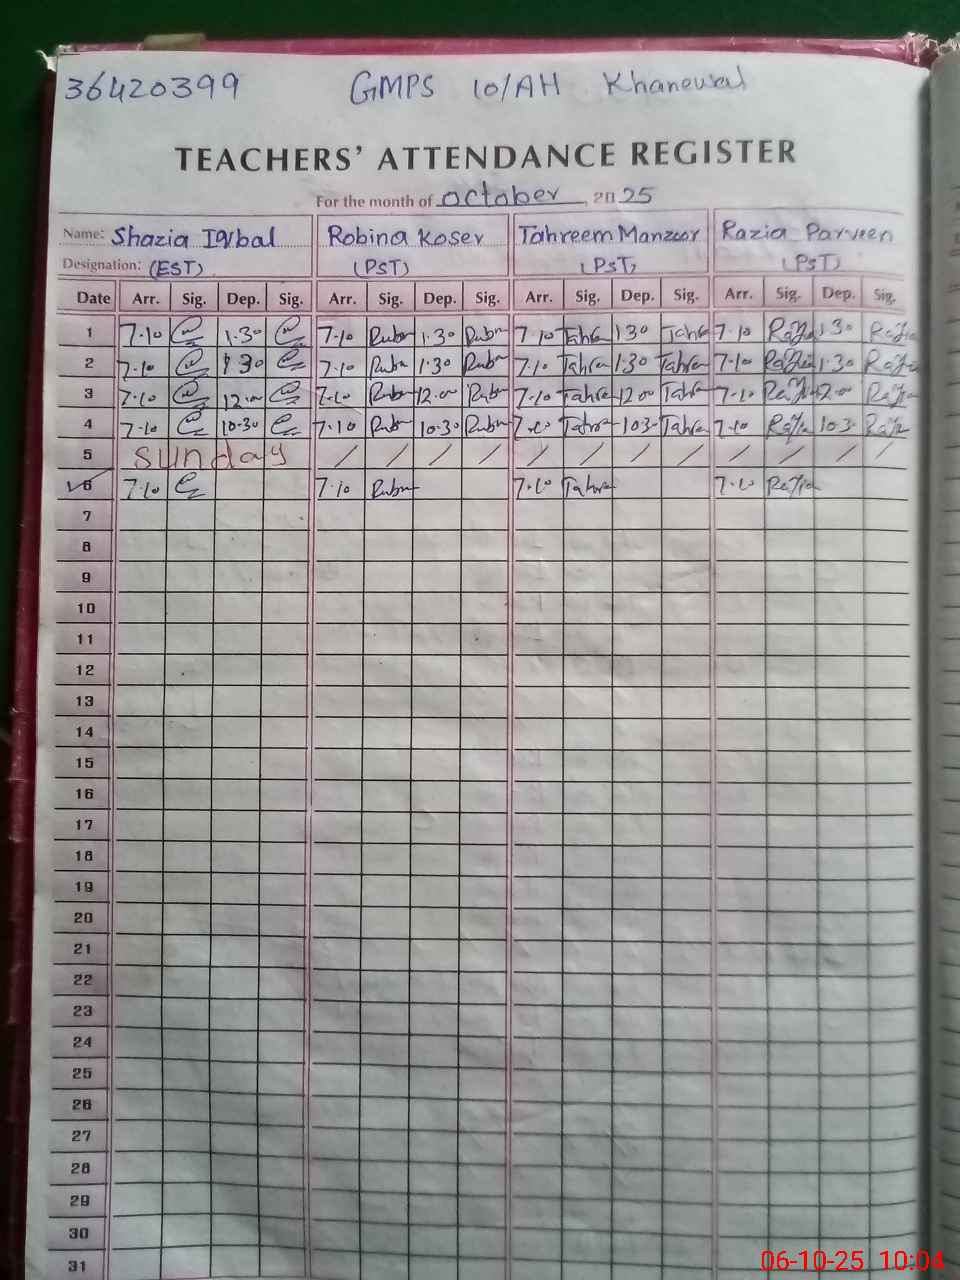 36420399 GMPS 10/AH Khanewal
TEACHERS' ATTENDANCE REGISTER
For the month of october, 2025
Name: Shazia Iqbal Robina Koser Tahreem Manzoor Razia Parveen
Designation: (EST) (PST) (PST) (PST)
Date Arr. Sig. Dep. Sig. Arr. Sig. Dep. Sig. Arr. Sig. Dep. Sig. Arr. Sig. Dep. Sig.
1 7·10 1·30 7·10 Rubn 1·30 Rubn 7·10 Tahre 130 Tahre 7·10 Razia 1·30 Razia
2 7·10 1·30 7·10 Rubn 1·30 Rubn 7·10 Tahre 1·30 Tahre 7·10 Razia 1·30 Razia
3 7·10 12·00 7·10 Rubn 12·00 Rubn 7·10 Tahre 12·00 Tahre 7·10 Razia 12·00 Razia
4 7·10 10·30 7·10 Rubn 10·30 Rubn 7·10 Tahre 103· Tahre 7·10 Razia 103· Razia
5 Sunday / / / / / / / / / / / /
6 7·10 7·10 Rubn 7·10 Tahre 7·10 Razia
7
8
9
10
11
12
13
14
15
16
17
18
19
20
21
22
23
24
25
26
27
28
29
30
31
06-10-25 10:04